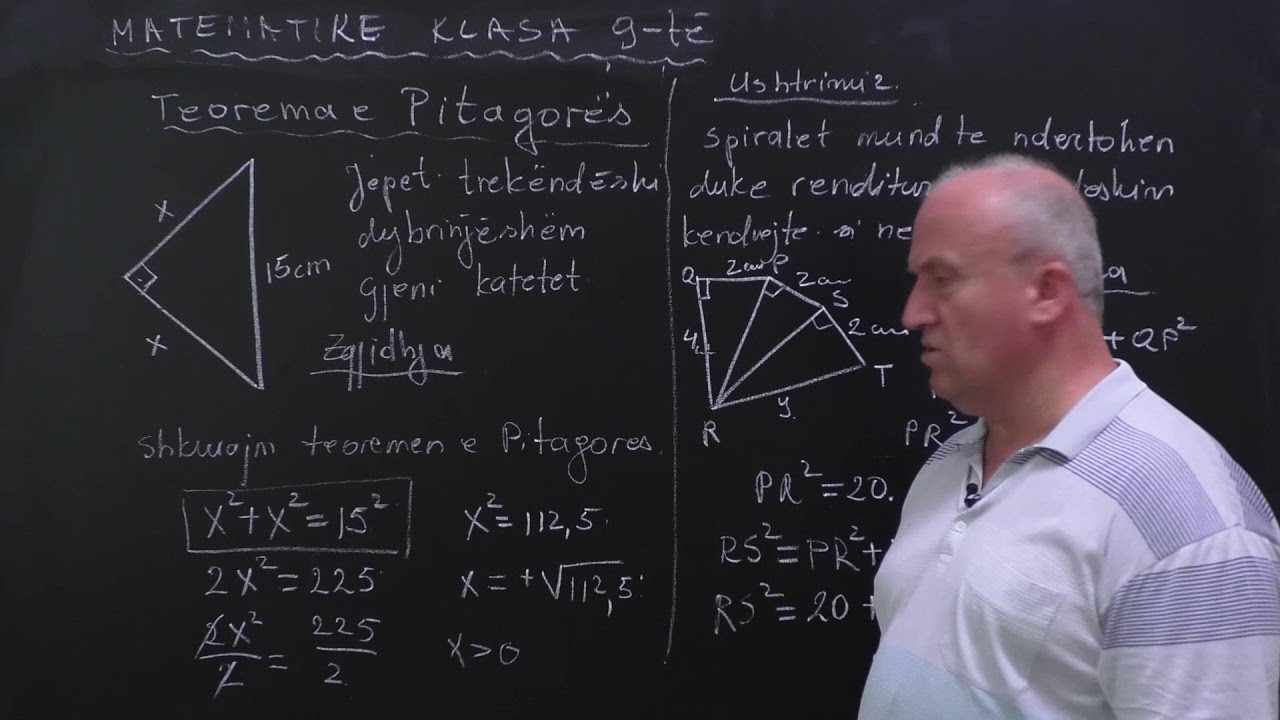 MATEMATIKE KLASA 9-të
Teorema e Pitagorës
Jepet trekëndëshi
dybrinjëshëm
gjeni katetet
Zgjidhja
x
x
15cm
shkruajm teoremen e Pitagores.
x²+x²=15²
2x²=225
2x²/2 = 225/2
x²=112,5
x=+√112,5
x>0
Ushtrimi 2.
spiralet mund te ndertohen
duke renditur
kendrejte si ne
Q 2cm P 2cm S 2cm T
4
R
y
+ QP²
PR²
PR²=20.
RS²=PR²+
RS²=20+